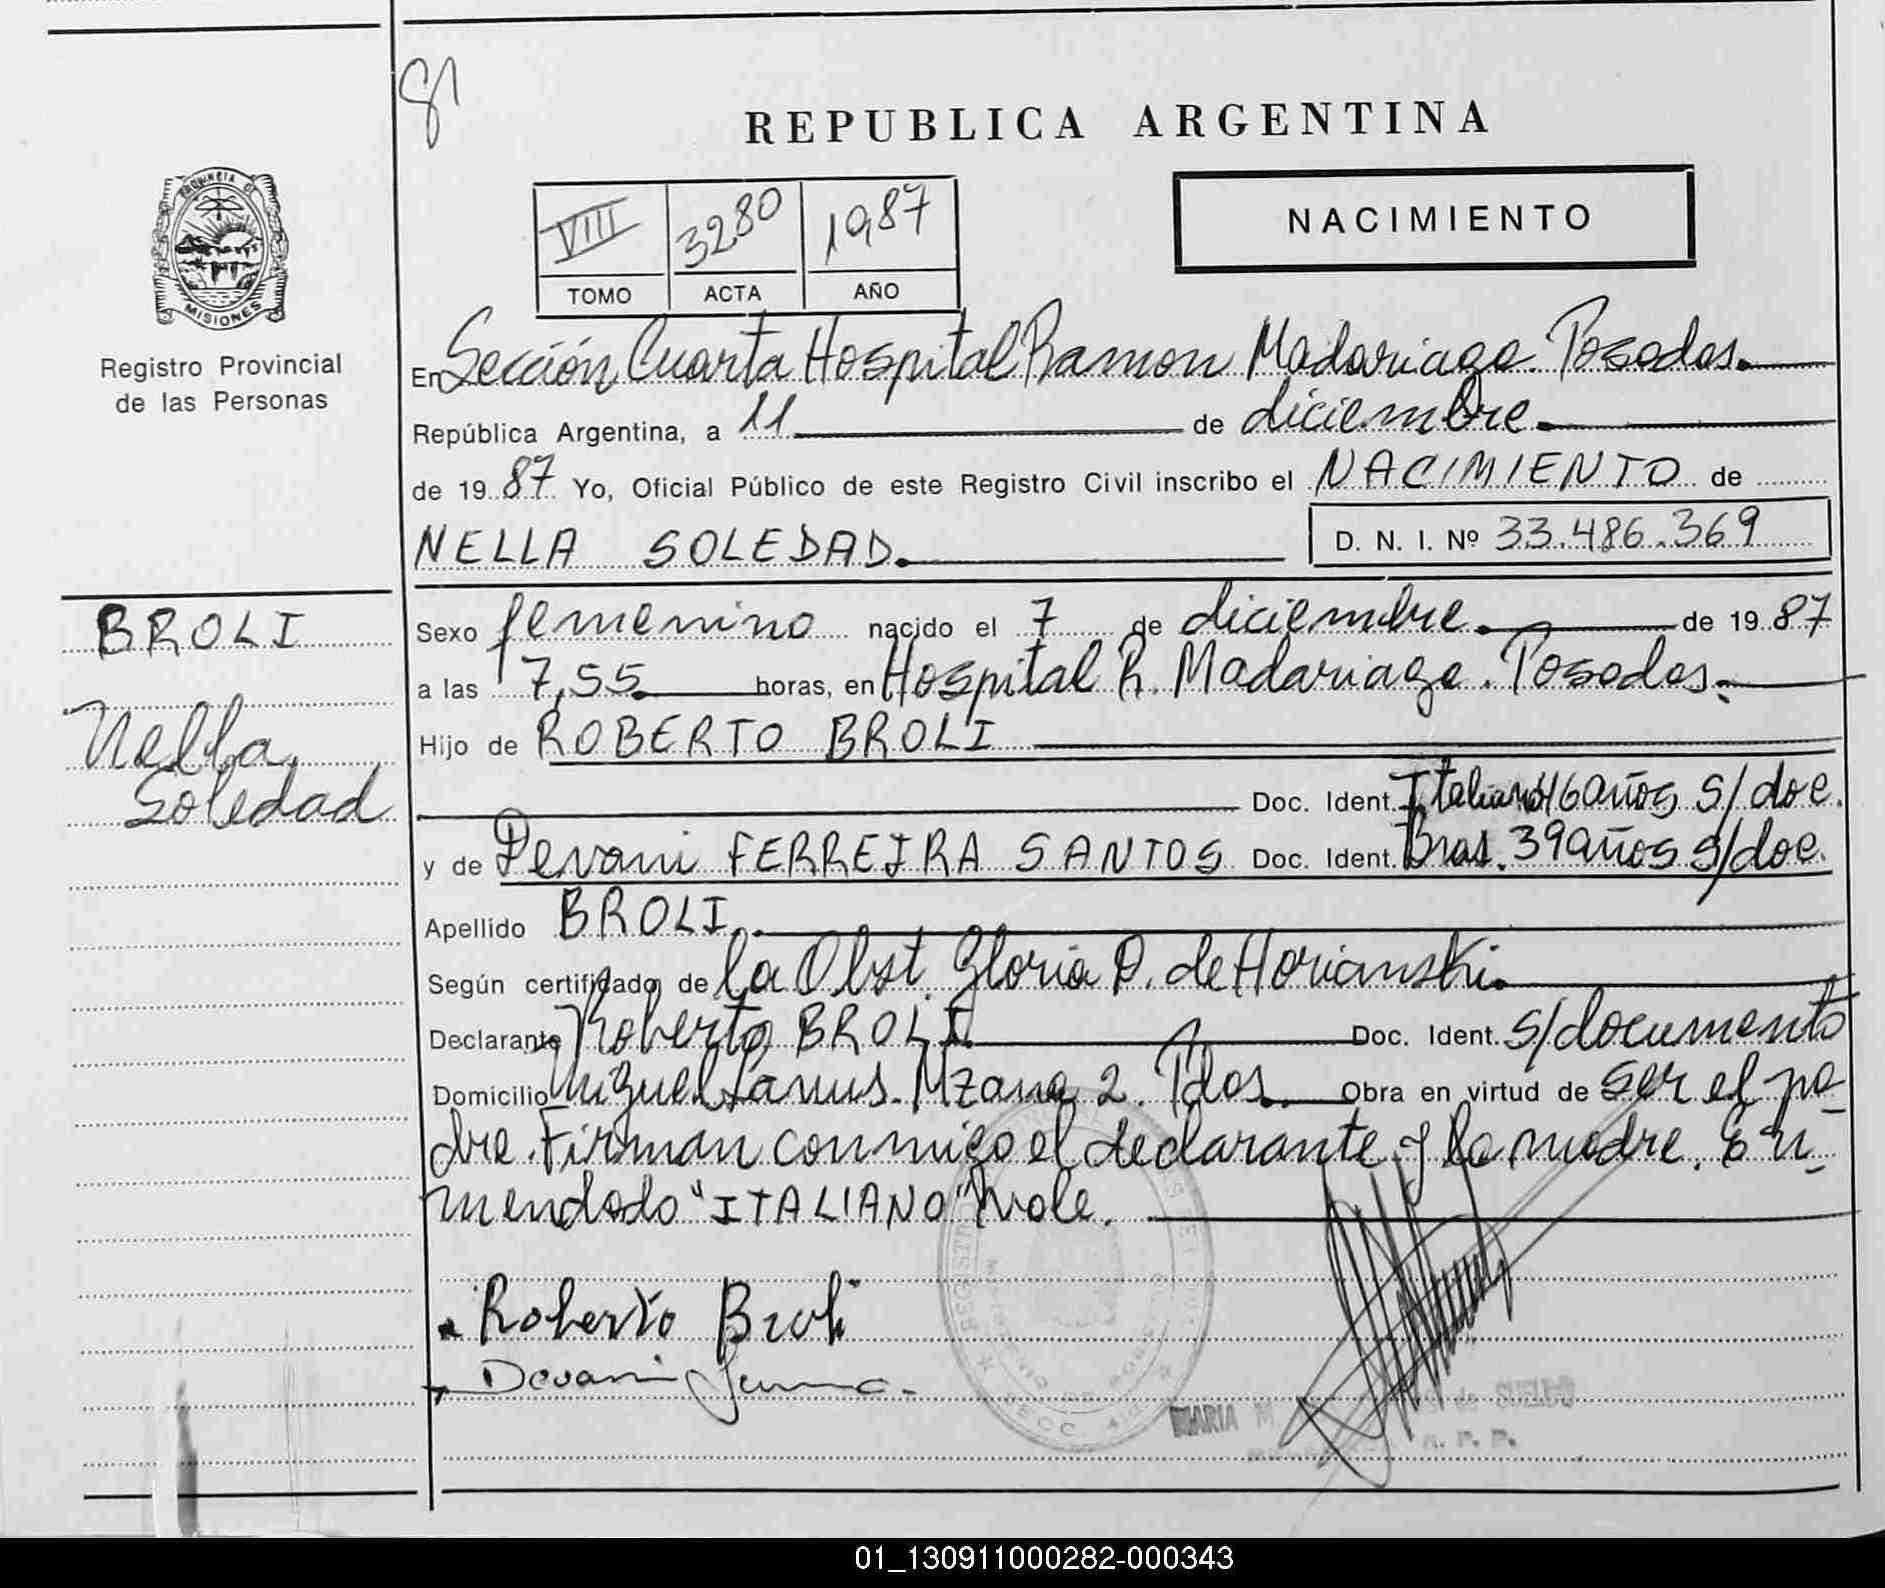 81
REPUBLICA ARGENTINA
PROVINCIA DE
MISIONES
Registro Provincial
de las Personas
VIII 3280 1987
TOMO ACTA AÑO
NACIMIENTO
En Sección Cuarta Hospital Ramon Madariaga. Posadas.
República Argentina, a 11 de diciembre.
de 1987 Yo, Oficial Público de este Registro Civil inscribo el NACIMIENTO de
NELLA SOLEDAD.
D. N. I. Nº 33.486.369
BROLI
Nella
Soledad
Sexo femenino nacido el 7 de diciembre. de 1987
a las 7,55 horas, en Hospital R. Madariaga. Posadas.
Hijo de ROBERTO BROLI
Doc. Ident. Italiano 46 años s/doc.
y de Devani FERREIRA SANTOS Doc. Ident. Bras. 39 años s/doc.
Apellido BROLI.
Según certificado de la Obst. Gloria D. de Horianski.
Declarante Roberto BROLI Doc. Ident. s/documento
Domicilio Miguel Lanus. Mzana 2. Pdas. Obra en virtud de ser el pa-
dre. Firman conmigo el declarante y la madre. En-
mendado "ITALIANO" Vale.
Roberto Broli
Devani
MARIA M
R. P. P.
01_130911000282-000343